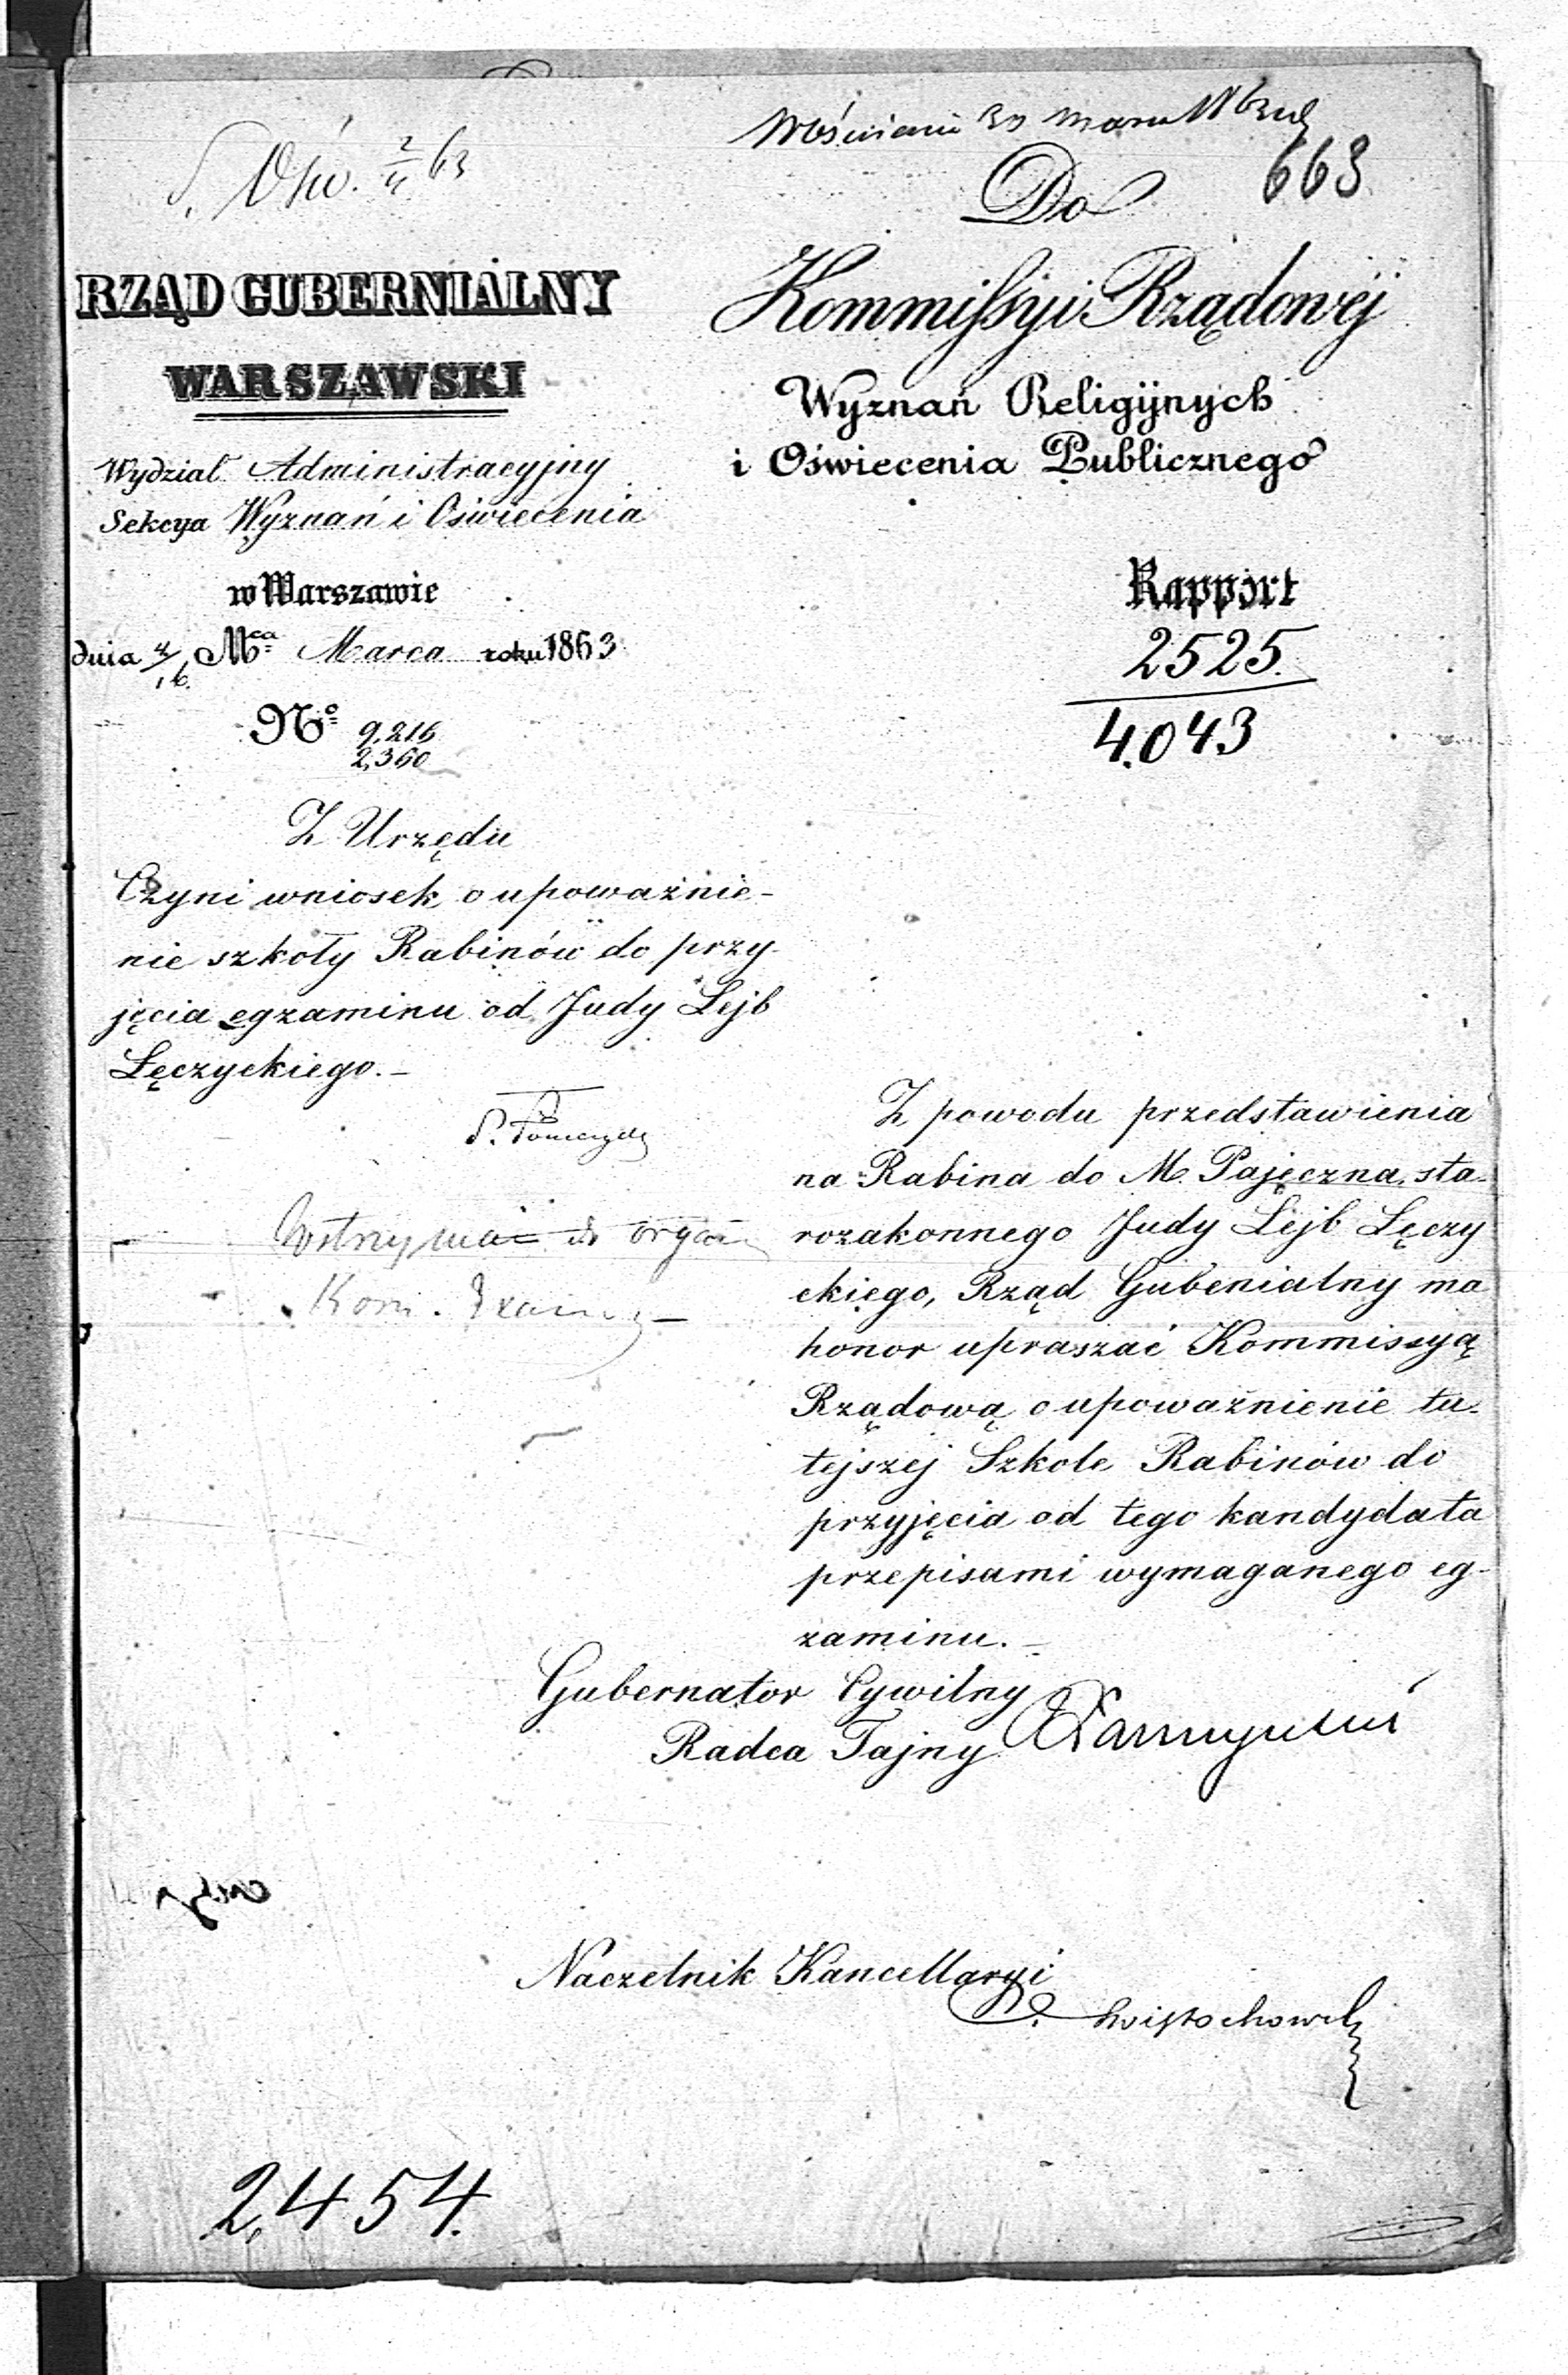 663
Do
Kommissyi Rządowéj
Wyznań Religijnych
i Oświecenia Publicznego
Rapport
2525.
4.043
RZĄD GUBERNIALNY
WARSZAWSKI
Wydział Administracyjny
Sekcya Wyznań i Oświecenia
w Warszawie
dnia 4/16 Mca Marca roku 1863
No 9,216
2,360
Z Urzędu
Czyni wniosek o upoważnie-
nie szkoły Rabinów do przy-
jęcia egzaminu od Judy Lejb
Łęczyckiego. –
Z powodu przedstawienia
na Rabina do M. Pajęczna, sta-
rozakonnego Judy Lejb Łęczy
ckiego, Rząd Gubenialny ma
honor upraszać Kommissyą
Rządową o upoważnienie tu-
tejszej Szkole Rabinów do
przyjęcia od tego kandydata
przepisami wymaganego eg-
zaminu. –
Wstrzymać do organ
Kom.
Gubernator Cywilny
Radca Tajny
Naczelnik Kancellaryi
2,454.